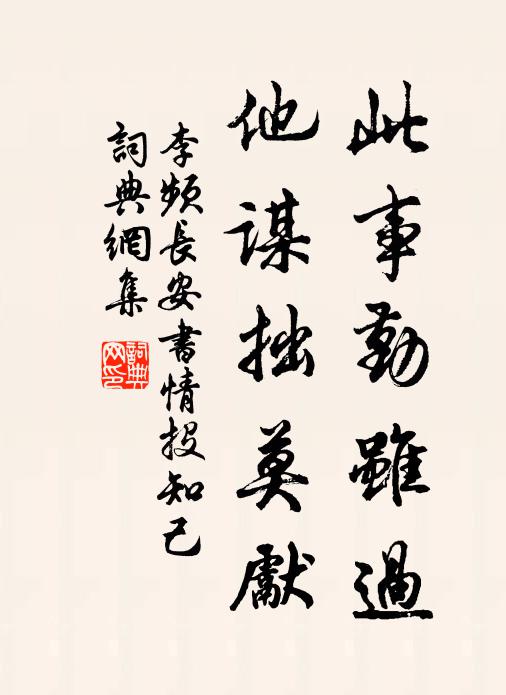 此事勤雖過
他謀拙莫獻
李頻長安書情投知己
詞典網集
詞典網印